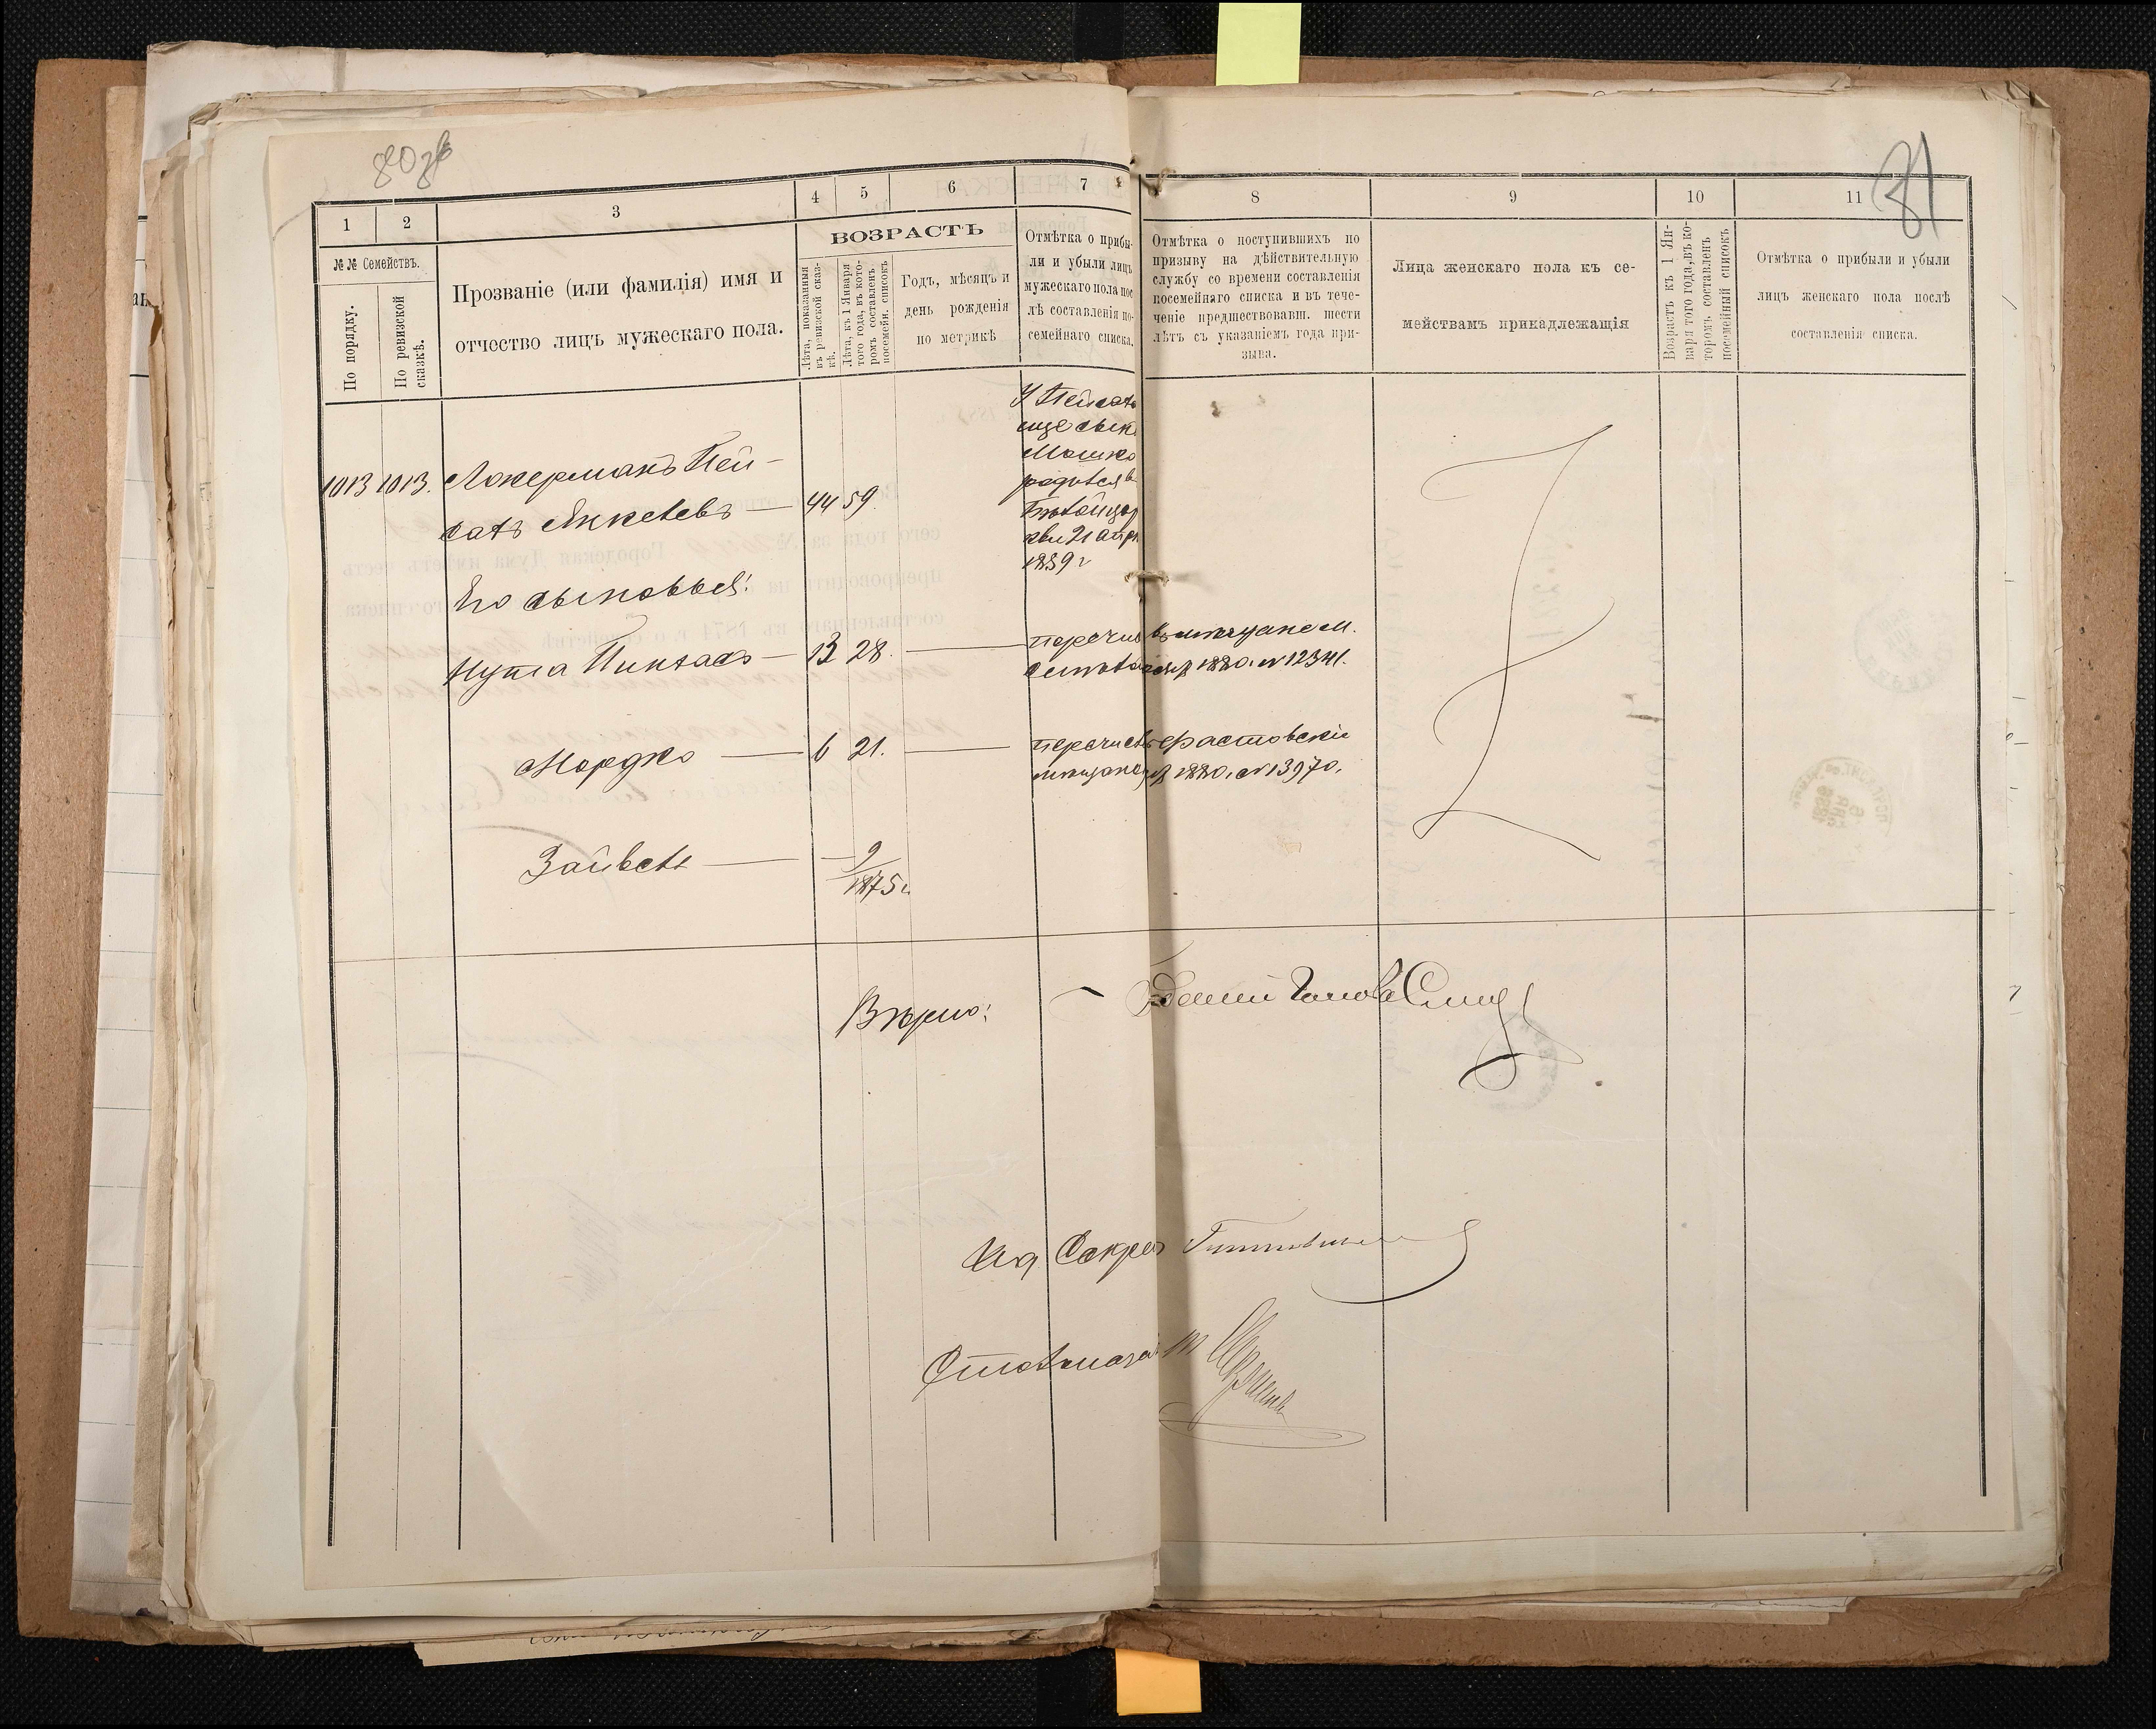 80 зв
81
1
2
3
4
5
6
7
8
9
10
11
№№ Семействъ.
По порядку.
По ревизской
сказкѣ.
Прозваніе (или фамилія) имя и
отчество лицъ мужескаго пола.
ВОЗРАСТЪ
Лѣта, показанныя
въ ревизской сказ-
кѣ.
Лѣта, къ 1 Января
того года, въ кото-
ромъ составленъ
посемейн. списокъ
Годъ, мѣсяцъ и
день рожденія
по метрикѣ
Отмѣтка о прибы-
ли и убыли лицъ
мужескаго пола пос
лѣ составленія по-
семейнаго списка.
Отмѣтка о поступившихъ по
призыву на дѣйствительную
службу со времени составленія
посемейнаго списка и въ тече-
ченіе предшествовавш. шести
лѣтъ съ указаніемъ года при-
зыва.
Лица женскаго пола къ се-
мействамъ принадлежащія
Возрастъ къ 1 Ян-
варя того года, въ ко-
торомъ составленъ
посемейный списокъ
Отмѣтка о прибыли и убыли
лицъ женскаго пола послѣ
составленія списка.
1013 1013. Локерманъ Пей-
сахъ Янкелевъ — 44 59.
У Пейсаха
еще сынъ
Мошко
родился в
Бѣлойцер
кви 21 апр
1859 г
Его сыновья:
Нута Пинхасъ — 13 28. — перечис въ мѣщане м.
1880. № 12341.
Мордко — 6 21. — перечис въ Ростовскіе
мѣщане 1880. № 13970.
Зайвель — 9
1875 г.
Вѣрно:
Голова
Ид Секрет
Столоначал